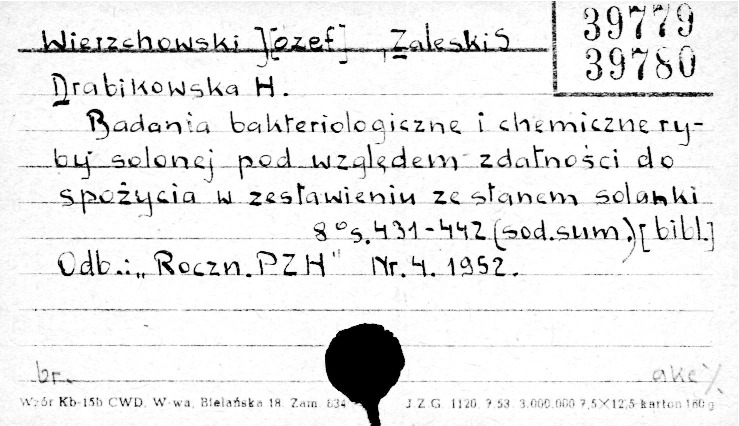 39779
39780
Wierzchowski J[ózef], Zaleski S
Drabikowska H.
Badania bakteriologiczne i chemiczne ry-
by solonej pod względem zdatności do
spożycia w zestawieniu ze stanem solanki
8° s. 431-442 (sod. sum.) [bibl.]
Odb.: "Roczn. PZH" Nr. 4. 1952.
br.
akc
Wzór Kb-15b CWD, W-wa, Bielańska 18. Zam. 834 J.Z.G. 1120. 9.53. 3.000.000 7,5×12,5 karton 160 g